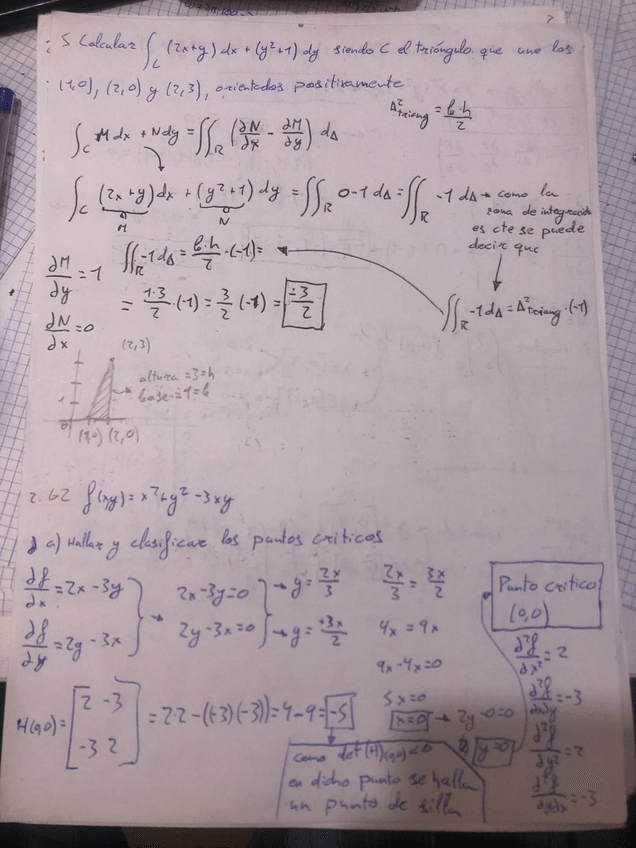 5 Calcular ∫_C (2x+y) dx + (y²+1) dy siendo C el triángulo que une los
(1,0), (2,0) y (2,3), orientados positivamente
A²triang = b·h/2
∫_C M dx + N dy = ∬_R (∂N/∂x - ∂M/∂y) dA
∫_C (2x+y) dx + (y²+1) dy = ∬_R 0-1 dA = ∬_R -1 dA → como la
M N
zona de integración
es cte se puede
decir que
∬_R -1 dA = A²triang·(-1)
∂M/∂y = 1
∬_R -1 dA = b·h/2 ·(-1) =
= 1·3/2 ·(-1) = 3/2 (-1) = -3/2
∂N/∂x = 0
(2,3)
altura = 3 = h
base = 1 = b
1
0 (1,0) (2,0)
2.62 f(xy) = x²+y² -3xy
a) Hallar y clasificar los puntos criticos
∂f/∂x = 2x-3y
∂f/∂y = 2y-3x
2x-3y=0 → y = 2x/3
2y-3x=0 → y = +3x/2
2x/3 = 3x/2
4x = 9x
9x-4x=0
5x=0
x=0 → 2y-0=0
y=0
Punto critico
(0,0)
∂²f/∂x² = 2
∂²f/∂x∂y = -3
∂²f/∂y² = 2
∂²f/∂y∂x = -3
H(0,0) = [2 -3
-3 2] = 2·2-((-3)(-3)) = 4-9 = -5
como det(H)(0,0) < 0
en dicho punto se halla
un punto de silla